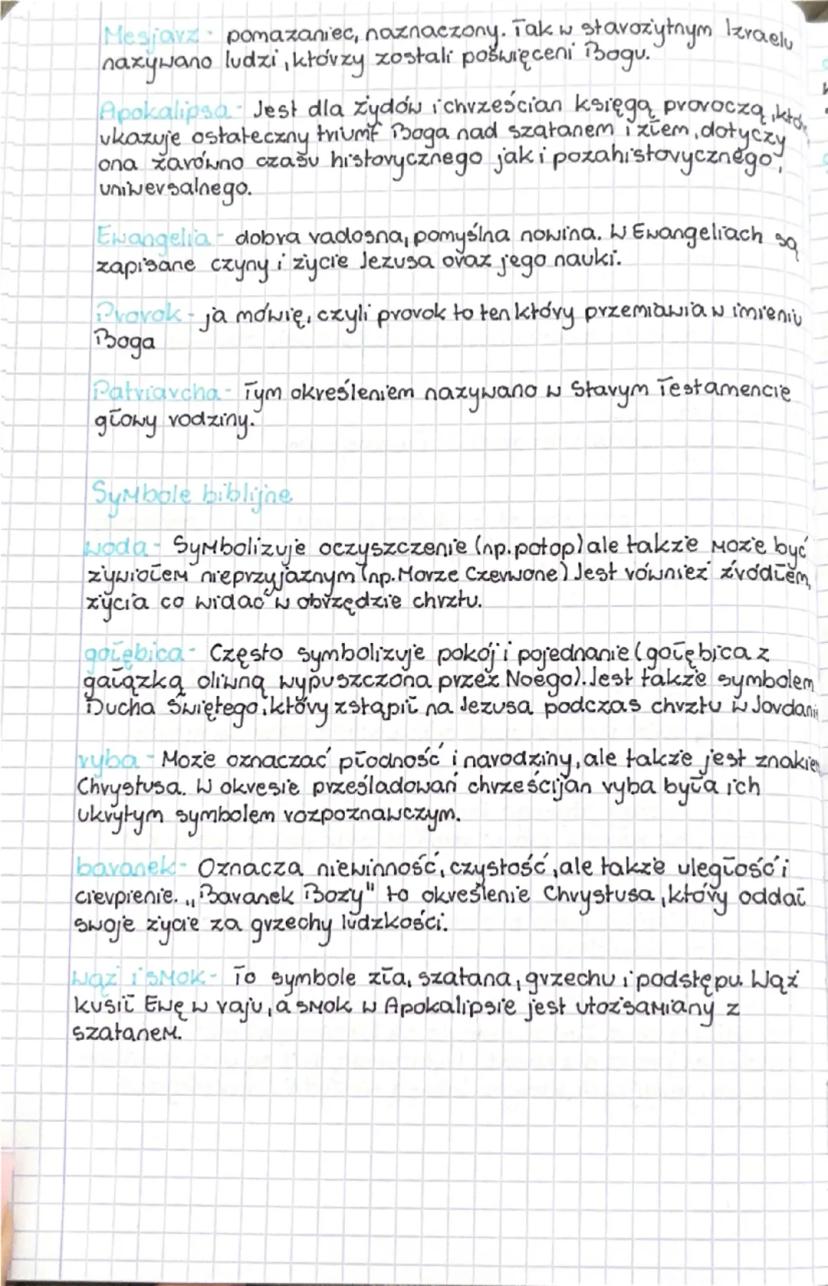 Mesjasz - pomazaniec, naznaczony. Tak w starożytnym Izraelu
nazywano ludzi, którzy zostali poświęceni Bogu.
Apokalipsa - Jest dla żydów i chrześcian księgą proroczą, któ
ukazuje ostateczny triumf Boga nad szatanem i złem, dotyczy
ona zarówno czasu historycznego jak i pozahistorycznego,
uniwersalnego.
Ewangelia - dobra radosna, pomyślna nowina. W Ewangeliach są
zapisane czyny i życie Jezusa oraz jego nauki.
Prorok - ja mówię, czyli prorok to ten który przemiawia w imieniu
Boga
Patriarcha - Tym określeniem nazywano w Starym Testamencie
głowy rodziny.
Symbole biblijne
woda - Symbolizuje oczyszczenie (np. potop) ale także może być
żywiołem nieprzyjaznym (np. Morze Czerwone) Jest również źródłem
życia co widać w obrzędzie chrztu.
gołębica - Często symbolizuje pokój i pojednanie (gołębica z
gałązką oliwną wypuszczona przez Noego). Jest także symbolem
Ducha Świętego, który zstąpił na Jezusa podczas chrztu w Jordani
ryba - Może oznaczać płodność i narodziny, ale także jest znakie
Chrystusa. W okresie prześladowań chrześcijan ryba była ich
ukrytym symbolem rozpoznawczym.
baranek - Oznacza niewinność, czystość, ale także uległość i
cierpienie. „Baranek Boży" to określenie Chrystusa, który oddał
swoje życie za grzechy ludzkości.
Wąż i smok - To symbole zła, szatana, grzechu i podstępu. Wąż
kusił Ewę w raju, a smok w Apokalipsie jest utożsamiany z
szatanem.